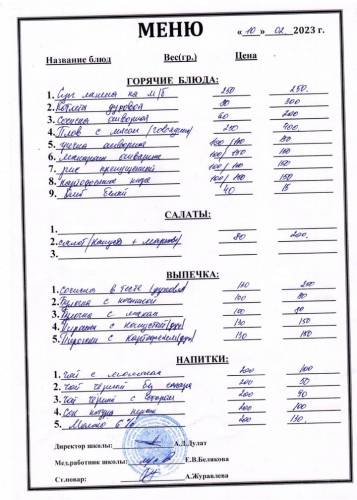 МЕНЮ
« 10 » 02 2023 г.
Название блюд Вес(гр.) Цена
ГОРЯЧИЕ БЛЮДА:
1. Суп лапша на м/б 250 250.
2. Котлета 80 300
3. Сосиска отварная 60 200
4. Плов с мясом (говядина) 210 400.
5. гречка отварная 100/ 80
6. макароны отварные 100/ 100
7. рис припущенный 100/ 100
8. картофельное пюре 100/ 150
9. Хлеб белый 40 15
САЛАТЫ:
1.
2. салат (капуста + морковь) 80 200.
3.
ВЫПЕЧКА:
1. Сосиска в тесте (духовая) 110 200
2. Булочка с 100 80
3. Булочка с маком 100 80
4. Пирожки с капустой (дух) 130 150
5. Пирожки с картофелем (дух) 130 150
НАПИТКИ:
1. чай с молоком 200 100
2. чай чёрный без сахара 200 50
3. чай чёрный с сахаром 200 90
4. Сок 200 100
5. Молоко 6% 200
Директор школы: А.Л.Дулат
Мед.работник школы: Е.В.Белякова
Ст.повар: А.Журавлева